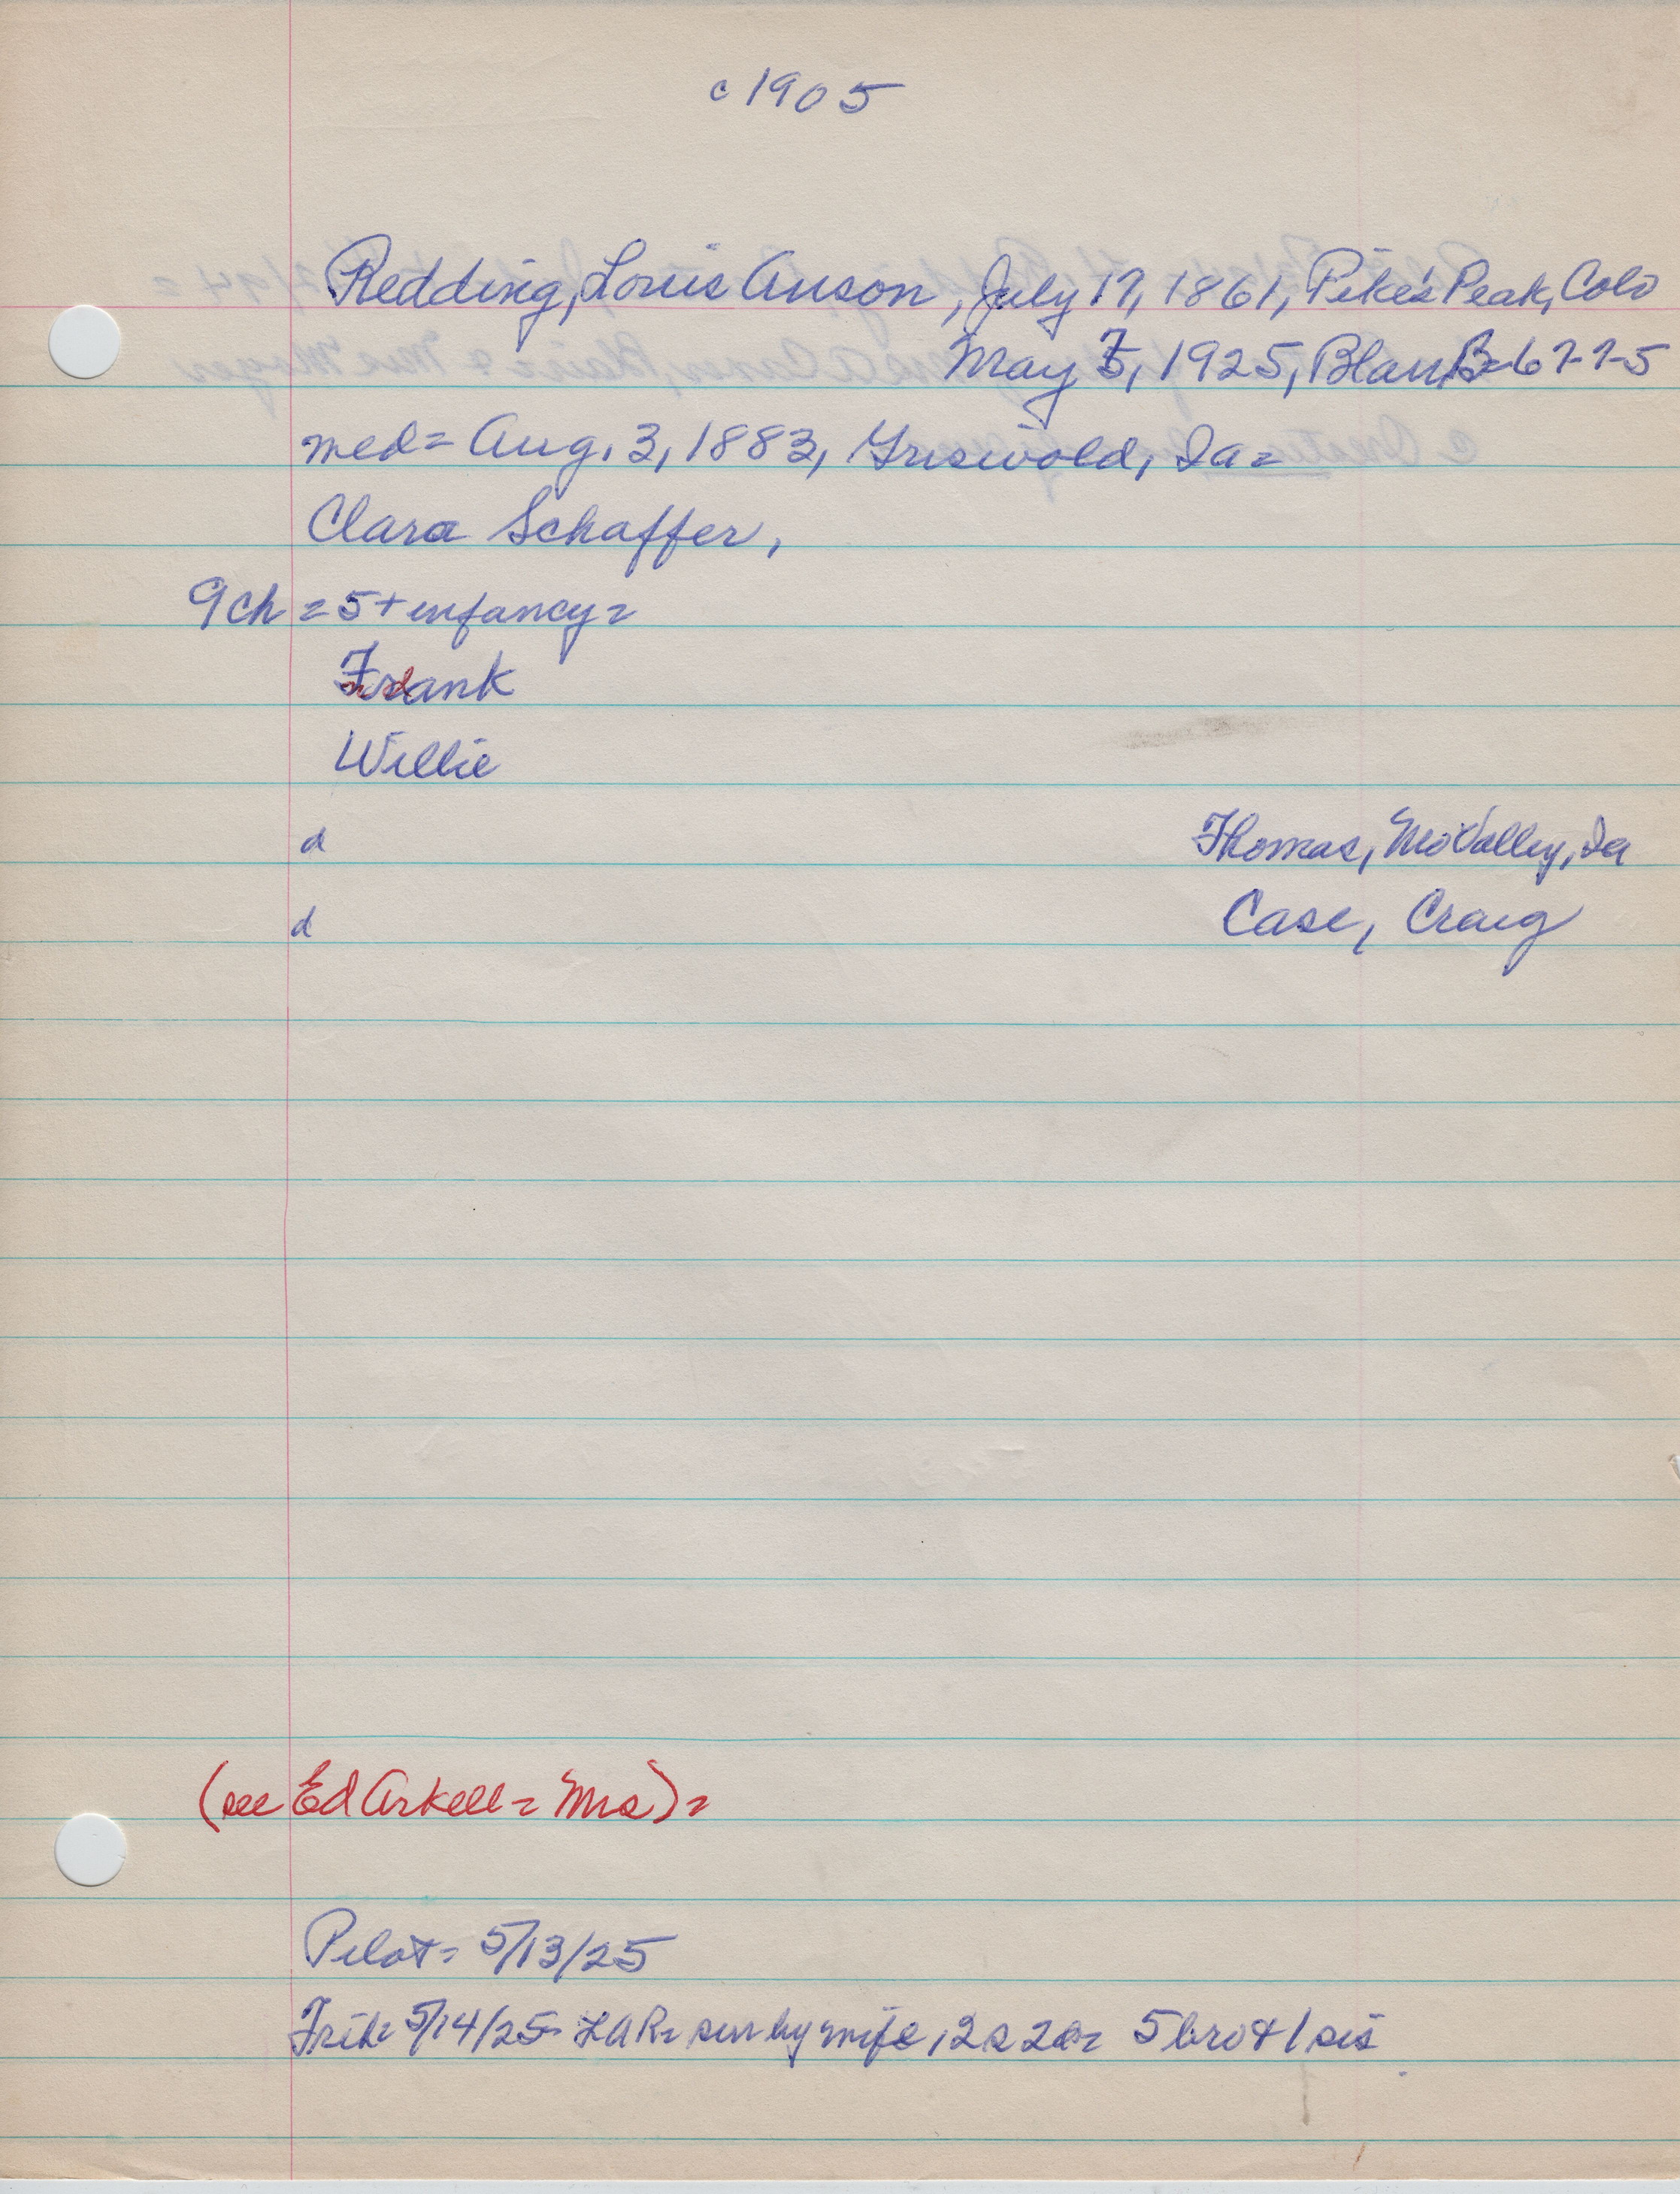 c 1905
Redding, Louis Anson, July 17, 1861, Pike's Peak, Colo
May 5, 1925, Blair B-67-7-5
med = Aug. 3, 1883, Griswold, Ia =
Clara Schaffer,
9 ch = 5 + infancy =
Frank
Willie
d Thomas, Mo Valley, Ia
d Case, Craig
(see Ed Arkell = Mrs) =
Pilot = 5/13/25
Trib = 5/14/25 = LAR = sur by wife, 2s 2d = 5 bro & 1 sis